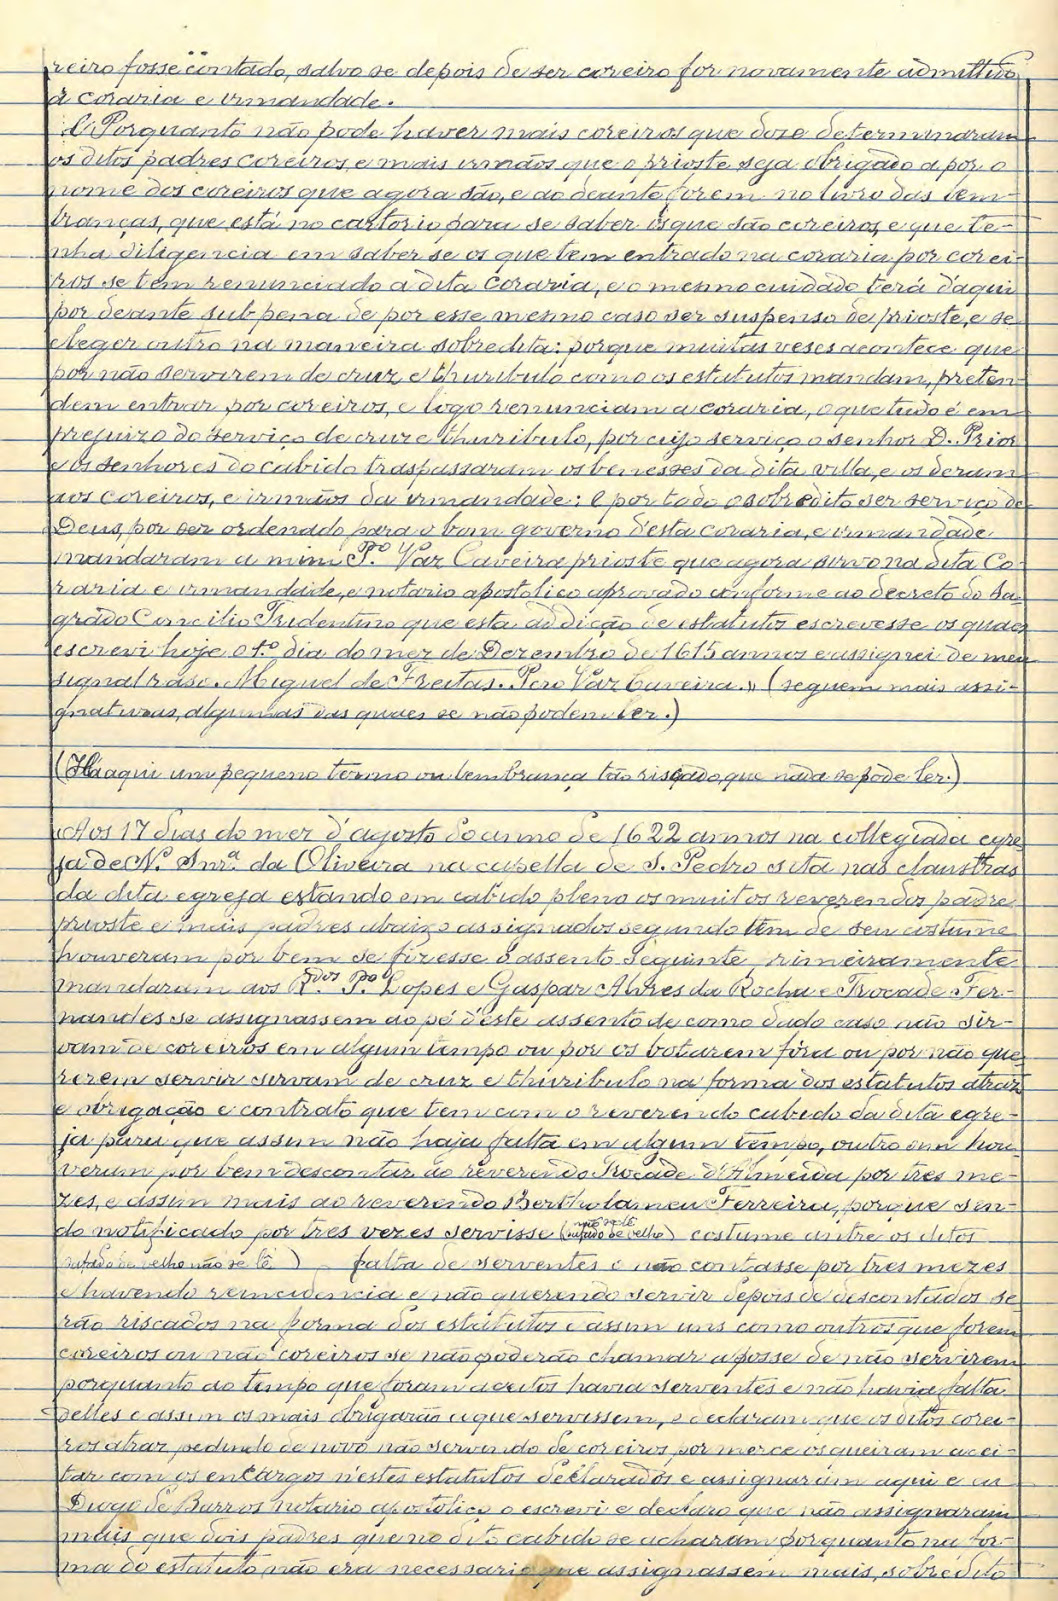 reiro fosse contado, salvo se depois de ser coreiro for novamente admittido
á coraria e irmandade.
E Porquanto não pode haver mais coreiros que doze determinaram
os ditos padres coreiros, e mais irmãos que o prioste seja obrigado a por o
nome dos coreiros que agora são, e ao deante forem no livro das lem-
branças, que está no cartorio para se saber os que são coreiros, e que te-
nha diligencia em saber se os que tem entrado na coraria por corei-
ros se tem renunciado a dita coraria, e o mesmo cuidado terá d'aqui
por deante sub pena de por esse mesmo caso ser suspenso de prioste, e se
eleger outro na maneira sobredita: porque muitas veses acontece que
por não servirem de cruz e thuribulo como os estatutos mandam, preten-
dem entrar por coreiros, e logo renunciam a coraria, o que tudo é em
prejuizo do serviço de cruz e thuribulo, por cujo serviço o senhor D. Prior
e os senhores do cabido traspassaram os benesses da dita villa, e os deram
aos coreiros, e irmãos da irmandade: e por todo o sobredito ser serviço de
Deus, por ser ordenado para o bom governo d'esta coraria, e irmandade
mandaram a mim P.º Vaz Caveira prioste que agora sirvo na dita Co-
raria e irmandade, e notario apostolico aprovado conforme ao decreto do Sa-
grado Concilio Tridentino que esta addição de estatutos escrevesse os quaes
escrevi hoje o 1.º dia do mez de Dezembro de 1615 annos e assignei de meu
signal raso. Miguel de Freitas. Pero Vaz Caveira.» (seguem mais assi-
gnaturas, algumas das quaes se não podem ler.)
(Há aqui um pequeno termo ou lembrança tão riscado, que nada se pode ler.)
«Aos 17 dias do mez d'agosto do anno de 1622 annos na collegiada egre-
ja de N.ª Snr.ª da Oliveira na capella de S. Pedro sita nas claustras
da dita egreja estando em cabido pleno os muitos reverendos padre
prioste e mais padres abaixo assignados segundo têm de seu costume
houveram por bem se fizesse o assento seguinte, rimeiramente
mandaram aos R.dos P.º Lopes e Gaspar Alvres da Rocha e Trocade Fer-
nandes se assignassem ao pé d'este assento de como dado caso não sir-
vam de coreiros em algum tempo ou por os botarem fóra ou por não que-
rerem servir sirvam de cruz e thuribulo na forma dos estatutos atraz
e obrigação e contrato que tem com o reverendo cabido da dita egre-
ja para que assim não haja falta em algum tempo, outro sim hou-
veram por bem descontar ao reverendo Trocade d'Almeida por tres me-
zes, e assim mais ao reverendo Bertholameu Ferreira, porque sen-
do notificado por tres vezes servisse (rafado de velho não se lê) costume entre os ditos
(rafado de velho não se lê) falta de serventes e não contasse por tres mezes
e havendo reincidencia e não querendo servir depois de descontados se-
rão riscados na forma dos estatutos e assim uns como outros que forem
coreiros ou não coreiros se não poderão chamar a posse de não servirem
porquanto ao tempo que foram aceitos havia serventes e não havia falta
delles e assim os mais obrigarão a que servissem, e declaram que os ditos corei-
ros atraz pedindo de novo não servindo de coreiros por merce os queiram acei-
tar com os encargos n'estes estatutos declarados e assignaram aqui e eu
Diogo de Barros notario apostolico o escrevi e declaro que não assignaram
mais que dois padres que no dito cabido se acharam porquanto na for-
ma do estatuto não era necessario que assignassem mais, sobredito